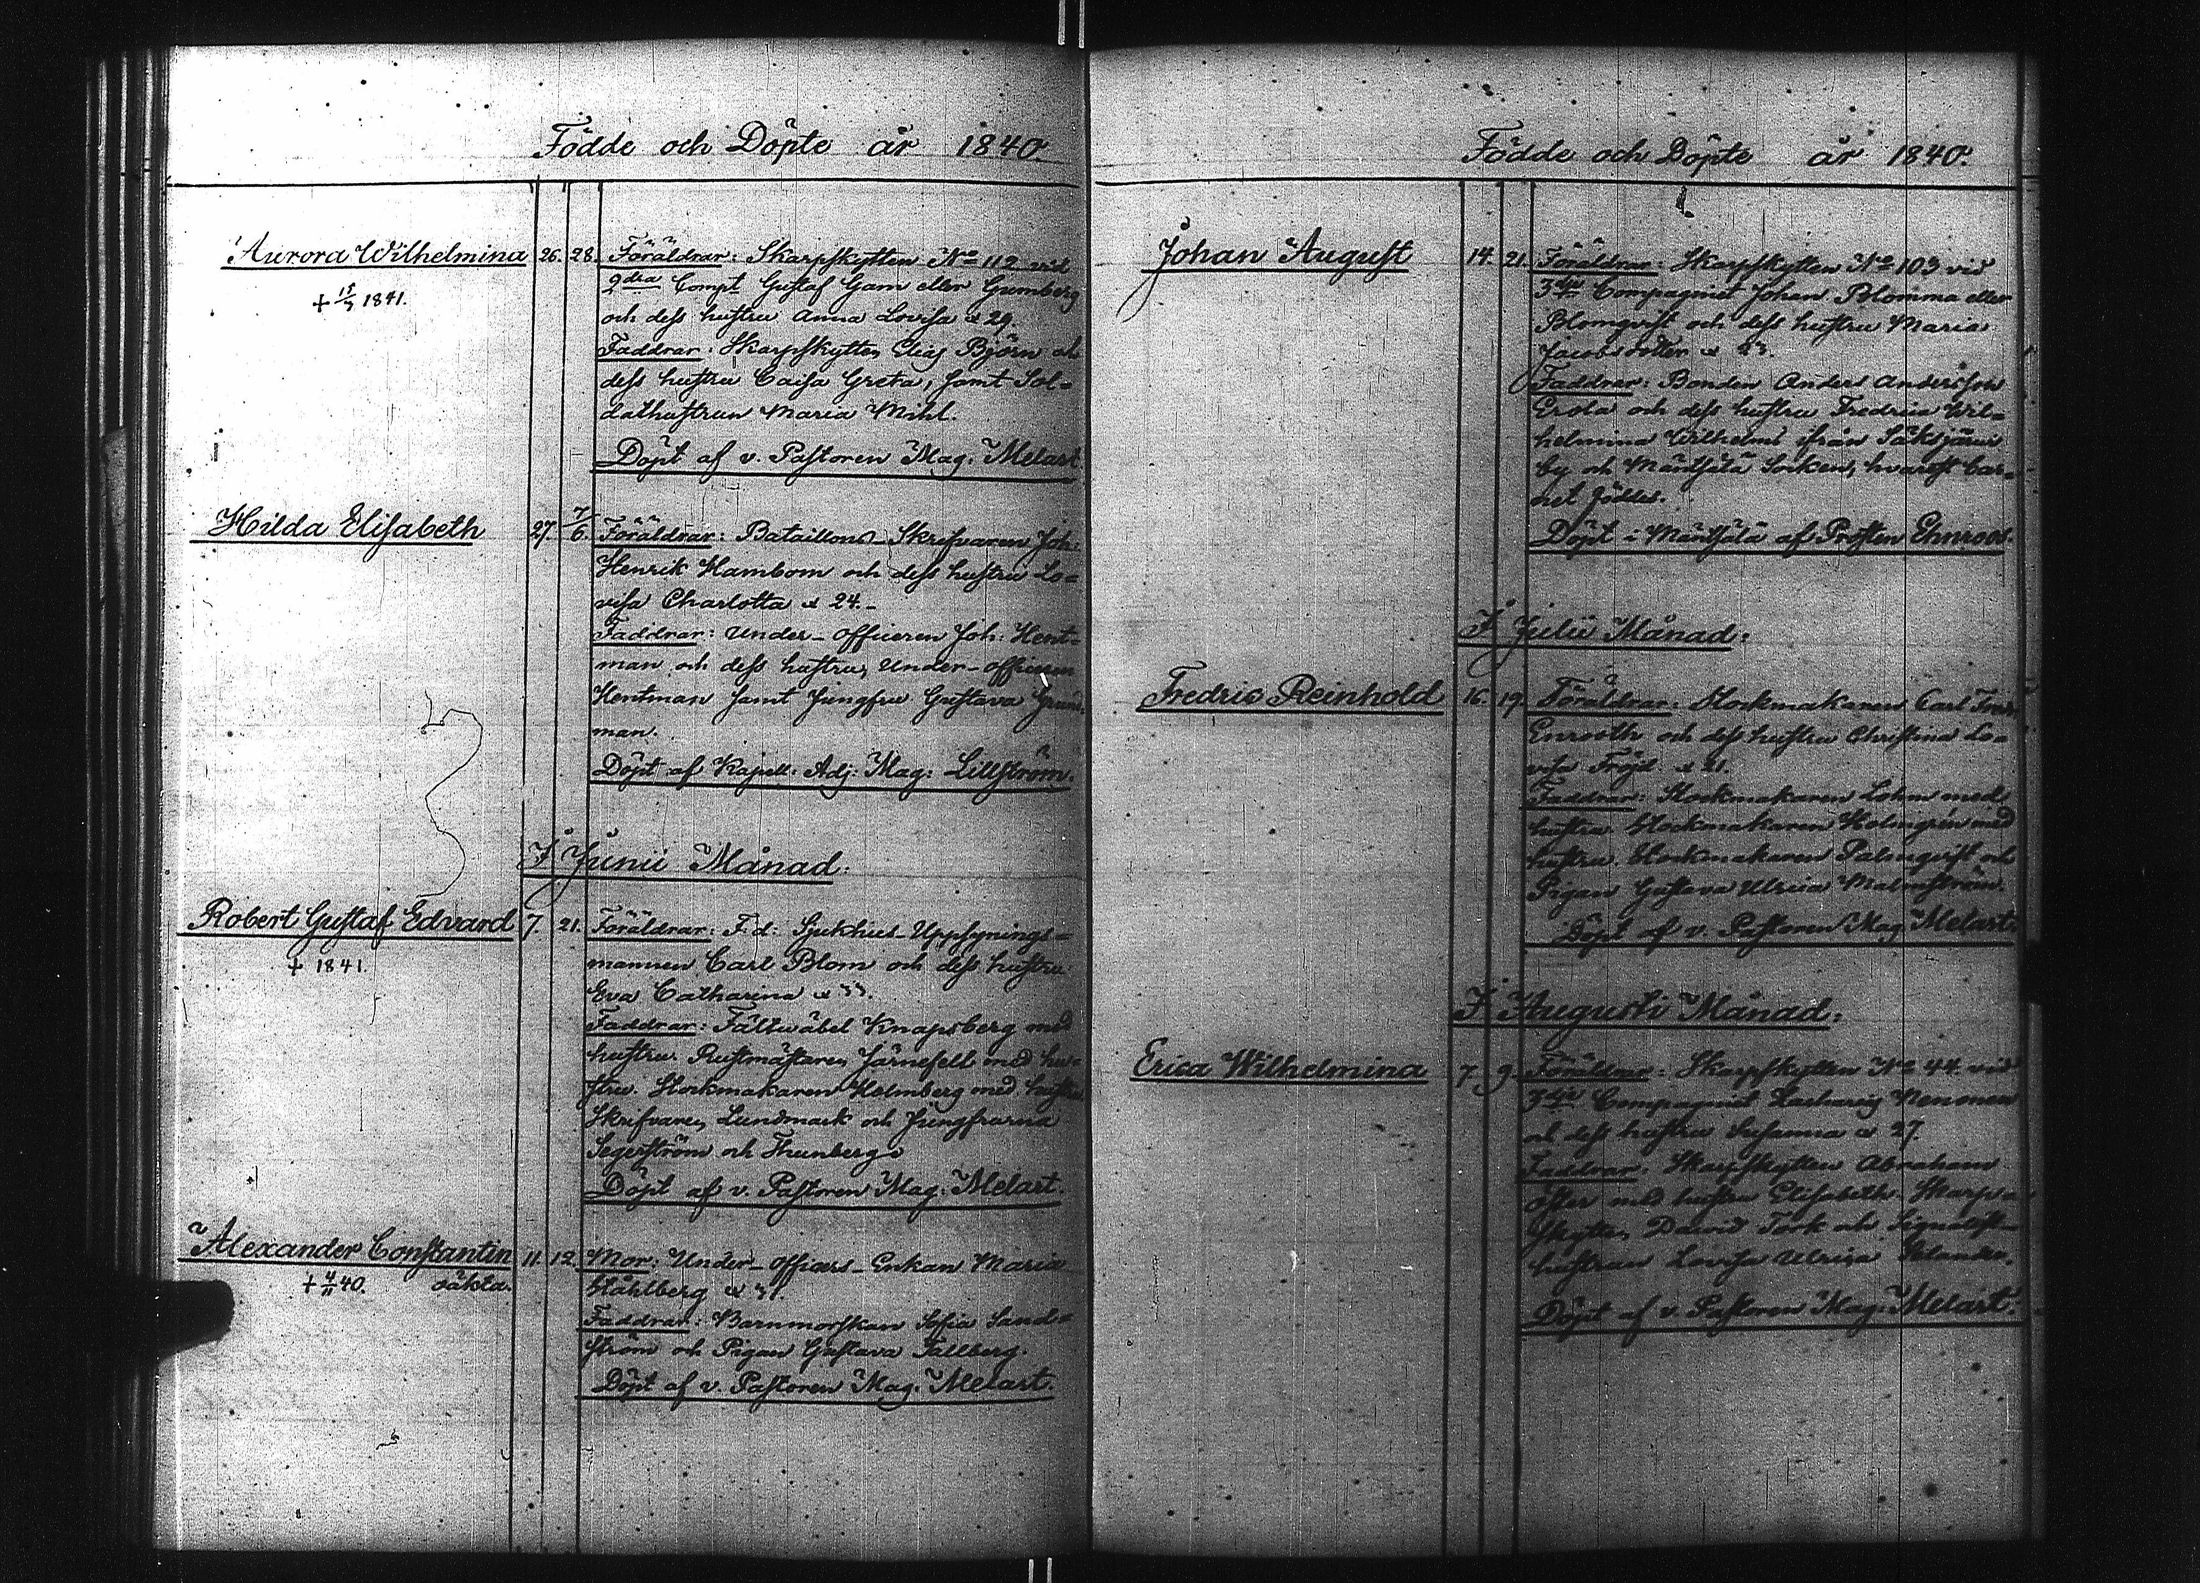 Födde och Döpte år 1840.
Aurora Wilhelmina 26. 28. Föräldrar: Skarpskytten No 112 vid
+ 15/3 1841. 2dra Compt Gustaf Gam eller Gumberg
och dess hustru Anna Lovisa æ 29.
Faddrar: Skarpskytten Elias Björn och
dess hustru Caisa Greta, samt Sol-
dathustrun Maria Mihl.
Döpt af v. Pastoren Mag. Melart.
Hilda Elisabeth 27. 7/6. Föräldrar: Bataillons-Skrifvaren Joh:
Henrik Hambom och dess hustru Lo-
visa Charlotta æ 24.-
Faddrar: Under-officeren Joh: Hent-
man och dess hustru, Under-officeren
Hentman samt Jungfru Gustava
man.
Döpt af Kapell: Adj: Mag: Lillström.
I Junii Månad:
Robert Gustaf Edvard 7. 21. Föräldrar: F.d: Sjukhus-Uppsynings-
+ 1841. mannen Carl Blom och dess hustru
Eva Catharina æ 33.
Faddrar: Fältwäbel Knapsberg med
hustru. Rustmästaren Järnefelt med hu-
stru. Stockmakaren Holmberg med hustru
Skrifvaren Lundmark och Jungfrurna
Segerström och Thunberg.
Döpt af v. Pastoren Mag. Melart.
Alexander Constantin 11. 12. Mor: Under-officers-Enkan Maria
+ 4/11 40. oäkta. Ståhlberg æ 31.
Faddrar: Barnmorskan Sofia Sand-
ström och Pigan Gustava Tallberg.
Döpt af v. Pastoren Mag. Melart.
Födde och Döpte år 1840.
Johan August 14. 21. Föräldrar: Skarpskytten No 103 vid
3dje Compagniet Johan Blomma eller
Blomqvist och dess hustru Maria
Jacobsdotter æ
Faddrar: Bonden Anders Andersson
Erola och dess hustru Fredrica Wil-
helmina Wilhelms ifrån Säksjärvi
by och Mäntsälä Socken, hvarest bar-
net föddes.
Döpt i Mäntsälä af Prosten Ehnroos.
I Julii Månad:
Fredric Reinhold 16. 19. Föräldrar: Stockmakaren Carl Fredr.
Enrooth och dess hustru Christina Lo-
visa Fröjd. æ 21.
Faddrar: Stockmakaren Lohm med
hustru. Stockmakaren Holmgrén med
hustru. Stockmakaren Palmqvist och
Pigan Gustava Ulrica Malmström.
Döpt af v. Pastoren Mag Melart.
I Augusti Månad:
Erica Wilhelmina 7. 9. Föräldrar: Skarpskytten No 44 vid
3dje Compagniet Zacharias Nenonen
och dess hustru Susanna æ 27.
Faddrar: Skarpskytten Abraham
Öster med hustru Elisabeth. Skarp-
skytten David Tork och Signalist-
hustrun Lovisa Ulrica
Döpt af v. Pastoren Mag: Melart.